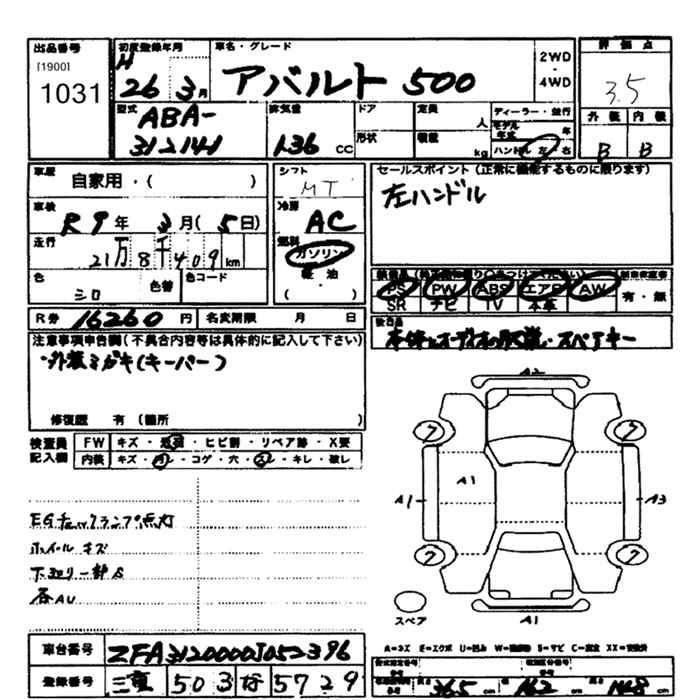 出品番号
[1900]
1031
初度登録年月
H 26 3月
車名・グレード
アバルト 500
2WD
・
4WD
評価点
3.5
外装 内装
B B
型式
ABA-
312141
排気量
1.36 cc
ドア
形状
定員
人
積載
kg
ディーラー・並行
モデル年式 年
ハンドル 左 右
車歴
自家用・( )
車検
R9年3月(5日)
走行
21万8千409km
色
シロ
色替
色コード
シフト
MT
冷房
AC
燃料
ガソリン
軽・油
( )
セールスポイント(正常に機能するものに限ります)
左ハンドル
PS PW ABS エアB AW
SR ナビ TV 本革
有・無
R券 16260円 名変期限 月 日
後日品
スペアキー
注意事項申告欄(不具合内容等は具体的に記入して下さい)
・外装ミガキ(キーパー)
修復歴 有(箇所
検査員
記入欄
FW キズ・飛石・ヒビ割・リペア跡・X要
内装 キズ・汚レ・コゲ・穴・スレ・キレ・破レ
EGチェックランプ点灯
ホイールキズ
下廻り一部S
各AU
A2
ワ ワ
A1 A1 A3
ワ ワ
スペア
A1
A=キズ E=エクボ U=凹み S=サビ C=腐食
車台番号 ZFA3120000J052396
登録番号 三重 503 5729
365cm 162cm 148cm